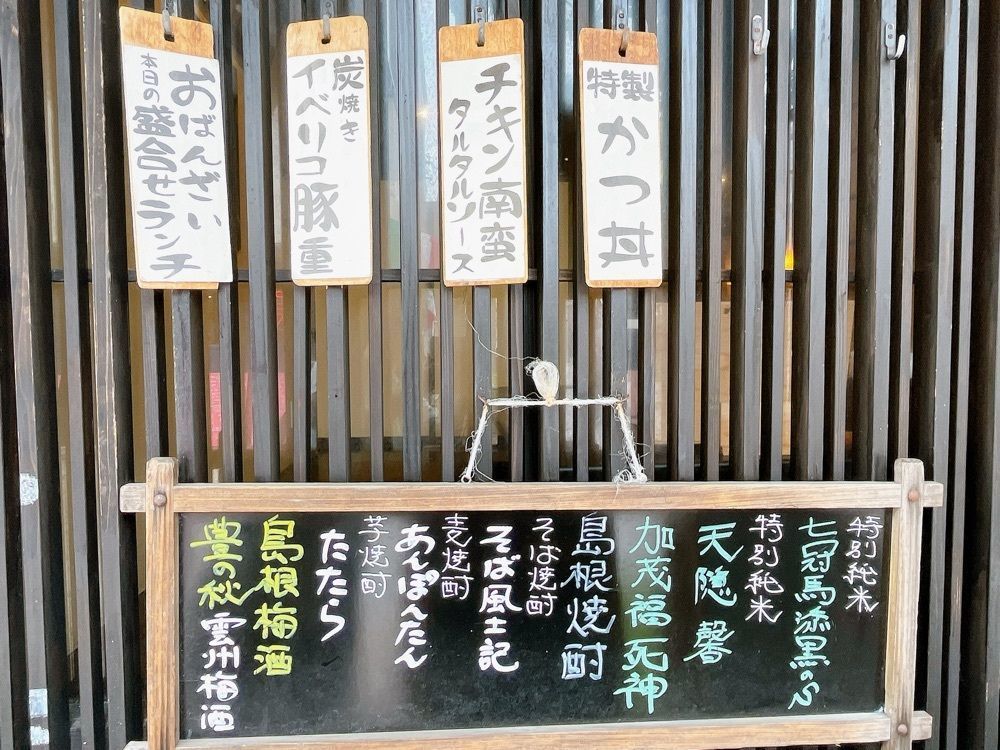 特製
かつ丼
チキン南蛮
タルタルソース
炭焼き
イベリコ豚重
おばんざい
本日の盛合せランチ
特別純米
七冠馬漆黒の
特別純米
天隠馨
加茂福死神
島根焼酎
そば焼酎
そば風土記
麦焼酎
あんぽんたん
芋焼酎
たたら
島根梅酒
豊の秋雲州梅酒